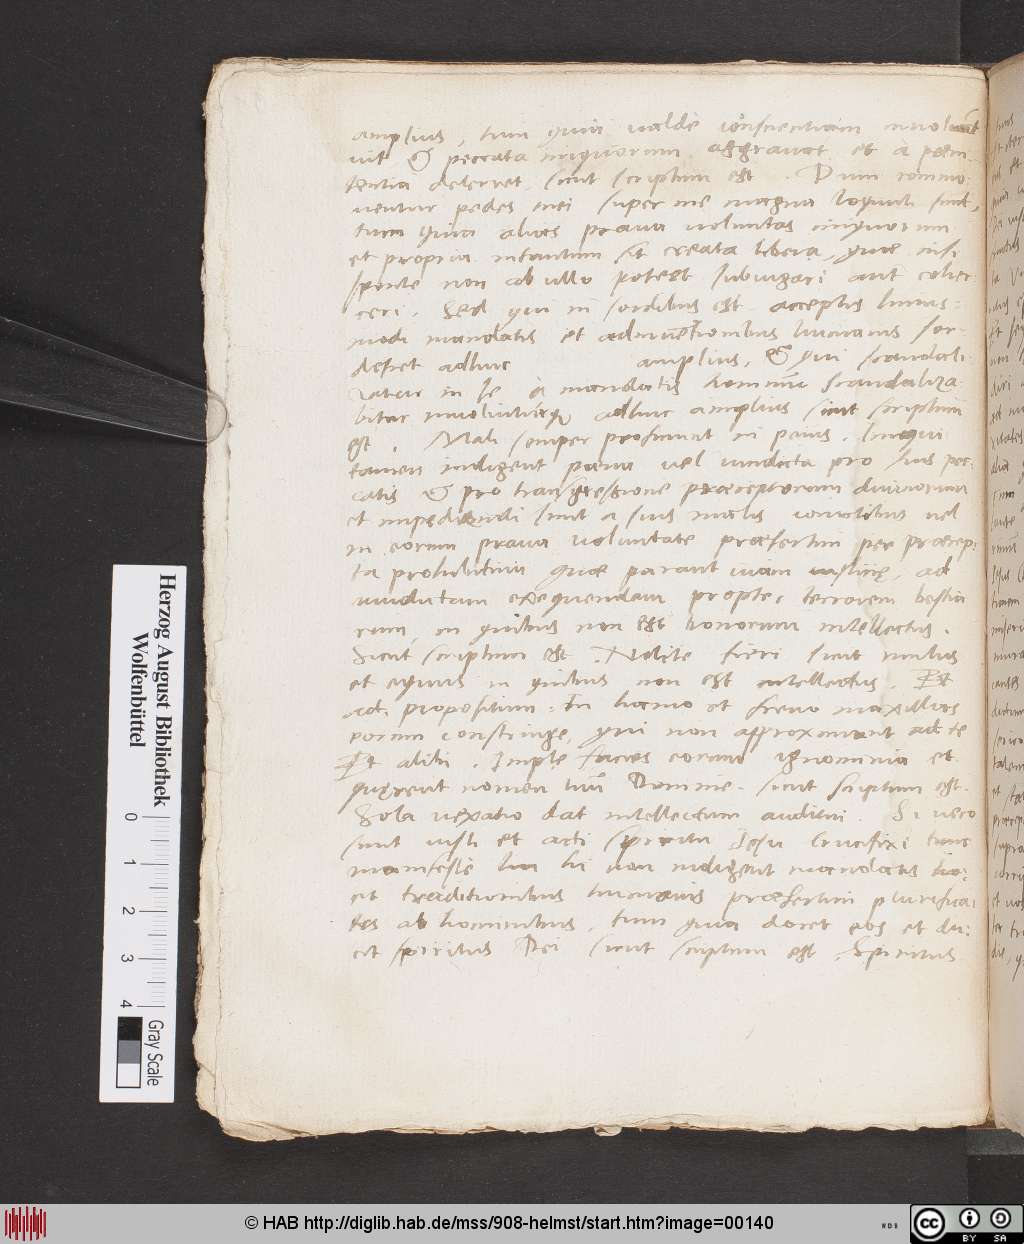 amplius, tum quia valde conscientiam involvunt
vit & peccata iniquorum aggravat et a poeni-
tentia deterret sicut scriptum est. Dum commo-
ventur pedes mei super me magna loquuti sunt,
tum quia alias prava voluntas iniquorum
et propria intantum sit creata libera, quae nisi
sponte non ab ullo potest subiugari aut coher-
ceri. Sed qui in sordibus est acceptis huius-
modi mandatis et adinventionibus humanis sor-
descet adhuc amplius, & qui scandali-
zatur in se a mandatis hominum scandaliza-
bitur involviturque adhuc amplius sicut scriptum
est. Mali semper proficiunt in peius. Iniqui
tamen indigent pena vel vindicta pro suis pec-
catis & pro transgressione praeceptorum divinorum
et impediendi sunt a suis malis conatibus vel
in eorum prava voluntate praesertim per praecep-
ta prohibitiva quae parant viam iusticię, ad
vindictam exequendam propter terrorem bestia
rum, in quibus non est bonorum intellectus.
Sicut scriptum est. Nolite fieri sicut mulus
et equus in quibus non est intellectus. Et
ad propositum. In hamo et freno maxillas
eorum constringe, qui non approximant ad te
Et alibi. Imple facies eorum ignominia et
quęrent nomen tuum Domine. sicut scriptum est.
Sola vexatio dat intellectum auditui. Si vero
sunt iusti et acti spiritu Jesu crucifixi tunc
manifeste hi non indigent mandatis
et traditionibus humanis praesertim
ab hominibus, tum quia docet eos et du-
cit spiritus Dei sicut scriptum est. Spiritus
Herzog August Bibliothek
Wolfenbüttel
0 1 2 3 4
Gray Scale
© HAB http://diglib.hab.de/mss/908-helmst/start.htm?image=00140
WDB
cc BY SA